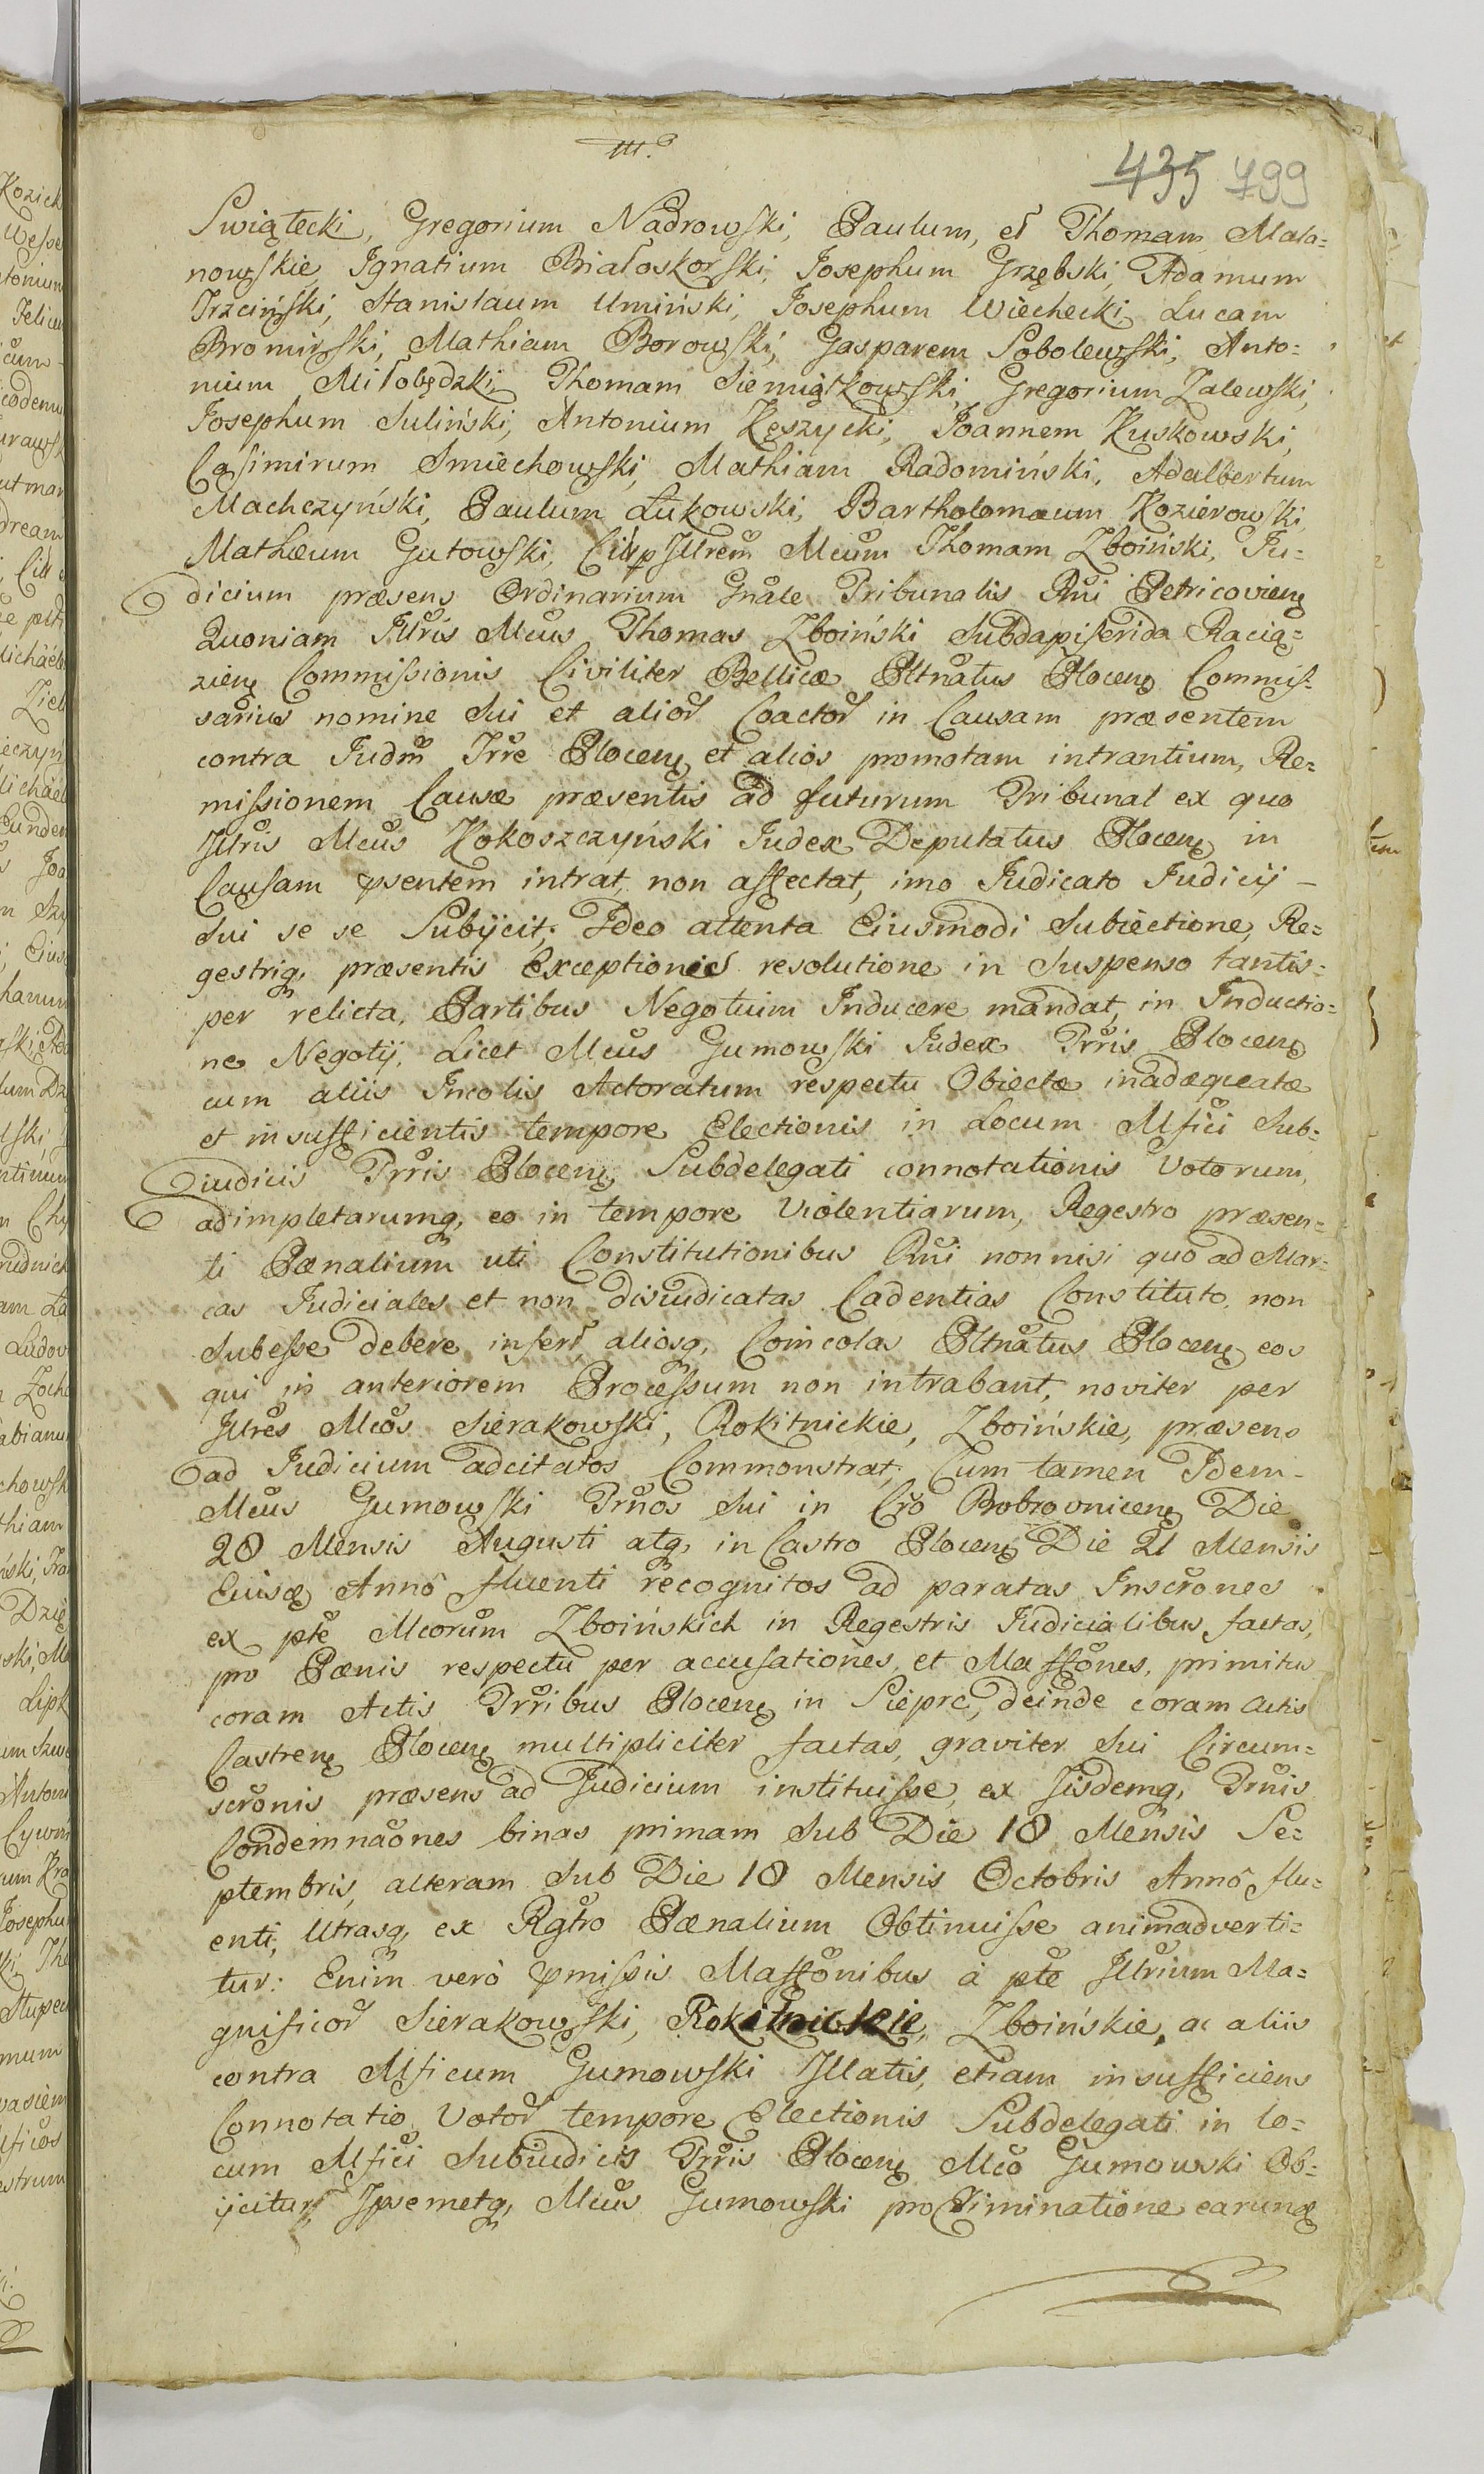 m.
435 799
Swiątecki, Gregorium Nadrowski, Paulum, et Thomam Mala=
nowskie Ignatium Białoskorski, Josephum Grzębski, Adamum
Trzciński, Stanislaum Umiński, Josephum Wiechecki Lucam
Bromirski, Mathiam Borowski, Gasparem Sobolewski, Anto=
nium Miłobędzki Thomam Siemiątkowski, Gregorium Zalewski,
Josephum Suliński, Antonium Kęszycki, Joannem Kuskowski,
Casimirum Smiechowski, Mathiam Radomiński, Adalbertum
Machczyński, Paulum Łukowski, Bartholomæum Kozierowski
Mathæum Gutowski, Illrem Mcum Thomam Zboiński, Ju=
dicium præsens Ordinarium Gnale Tribunalis Rni Petricovien
Quoniam Illris Mcus Thomas Zboiński Subdapiferida Racią=
zien Commissionis Civiliter Bellicæ Pltnatus Plocen Commis=
sarius nomine Sui et alior Coactor in Causam præsentem
contra Judm Trre Plocen et alios promotam intrantium, Re=
missionem Causæ præsentis ad futurum Tribunal ex quo
Illris Mcus Kokoszczyński Judex Deputatus Plocen in
Causam psentem intrat, non affectat, imo Judicato Judicij –
Sui se se Subijcit; Ideo attenta Eiusmodi Subiectione, Re=
gestriq, præsentis Exceptionis resolutione in Suspenso tantis=
per relicta, Partibus Negotium Inducere mandat, in Inductio=
ne Negotij, Licet Mcus Gumowski Judex Trris Plocen
cum aliis Incolis Actoratum respectu Obiectæ inadæquatæ
et insufficientis tempore Electionis in Locum Mfici Sub=
iudicis Trris Plocen Subdelegati connotationis Votorum,
adimpletarumq, eo in tempore Violentiarum, Regestro præsen=
ti Pænalium uti Constitutionibus Rni nonnisi quo ad Mar=
cas Judiciales et non disiudicatas Cadentias Constituto, non
Subesse debere infert, aliosq, Coincolas Pltnatus Plocen eos
qui in anteriorem Processum non intrabant, noviter per
Illres Mcos Sierakowski, Rokitnickie, Zboińskie, præsens
ad Judicium adcitatos Commonstrat; Cum tamen Idem –
Mcus Gumowski Prnos Sui in Cro Bobrovnicen Die
20 Mensis Augusti atq, in Castro Plocen Die 21 Mensis
Eiusd Annô fluenti recognitos ad paratas Inscrones
ex pte Mcorum Zboińskich in Regestris Judicialibus factas,
pro Pænis respectu per accusationes, et Maffones, primitus
coram Actis Trribus Plocen in Sieprc, deinde coram actis
Castren Plocen multipliciter factas, graviter Sui Circum=
scronis præsens ad Judicium instituisse, ex Jisdemq, Prnis
Condemnaones binas primam Sub Die 18 Mensis Se=
ptembris, alteram Sub Die 18 Mensis Octobris Annô flu=
enti, Utrasq, ex Rgtro Pænalium Obtinuisse animadverti=
tur: Enim verò pmissis Maffonibus à pte Illrium Ma=
gnificor Sierakowski, Rokitnickie, Zboińskie, ac aliis
contra Mficum Gumowski Illatis, etiam insufficiens
Connotatio Votor tempore Electionis Subdelegati in lo=
cum Mfici Subiudicis Trris Plocen Mco Gumowski Ob=
ijcitur, Ipsemetq, Mcus Gumowski pro Eliminatione earund